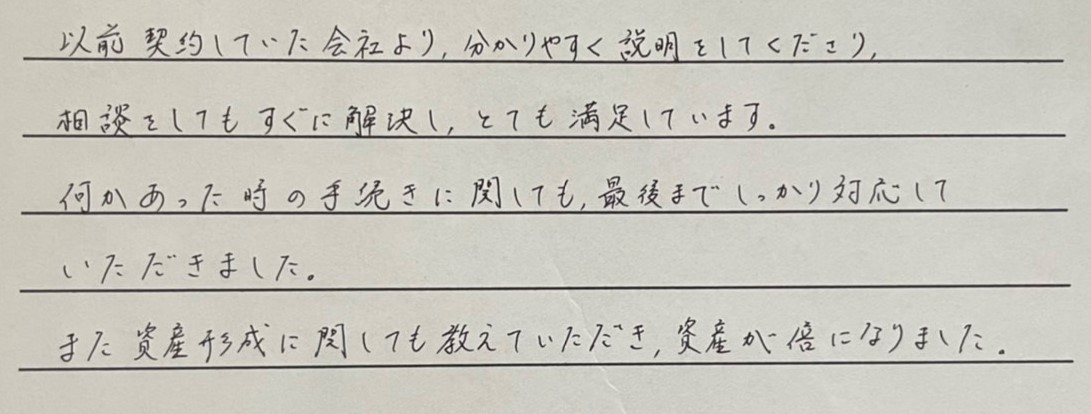 以前契約していた会社より,分かりやすく説明をしてくださり,
相談をしてもすぐに解決し,とても満足しています。
何かあった時の手続きに関しても,最後までしっかり対応して
いただきました。
また資産形成に関しても教えていただき,資産が倍になりました。